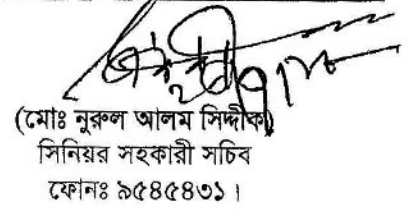 (মোঃ নুরুল আলম সিদ্দীক)
সিনিয়র সহকারী সচিব
ফোনঃ ৯৫৪৫৪৩১।